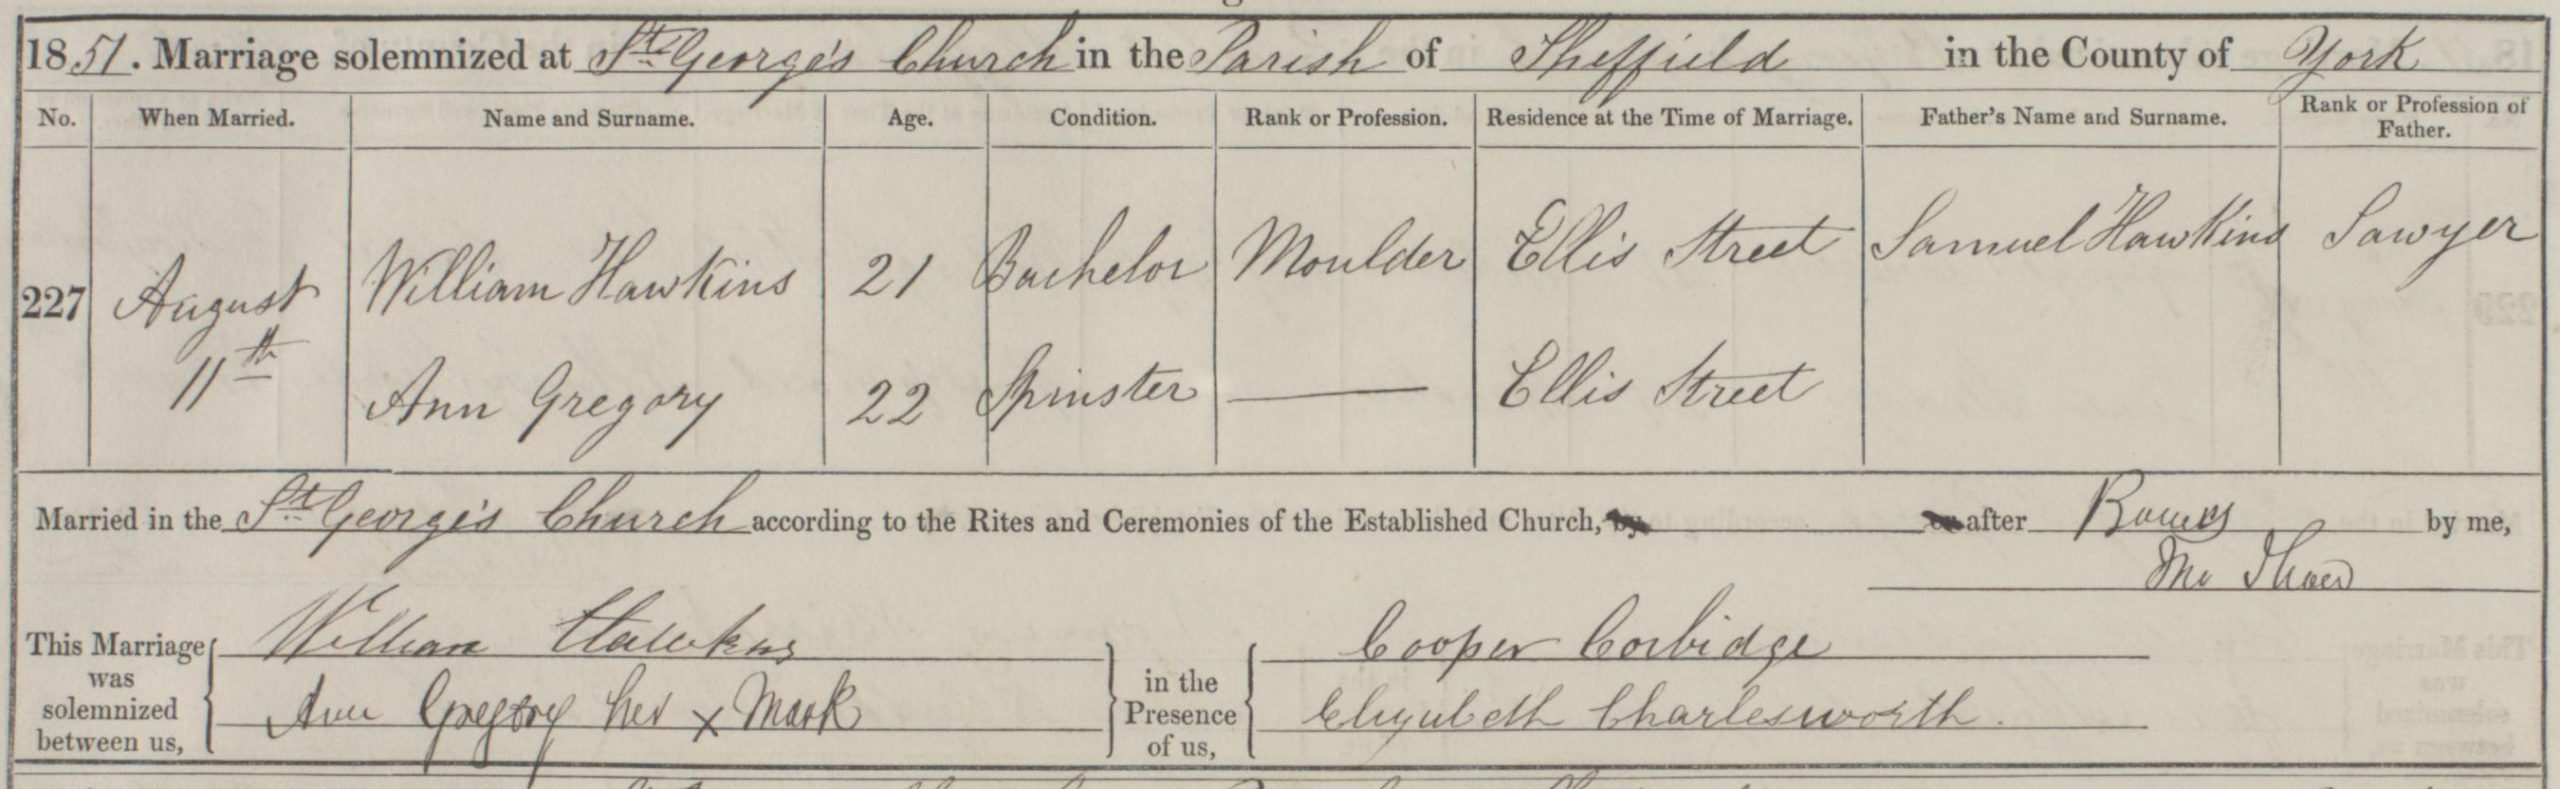 1851. Marriage solemnized at St. George's Church in the Parish of Sheffield in the County of York
No. When Married. Name and Surname. Age. Condition. Rank or Profession. Residence at the Time of Marriage. Father's Name and Surname. Rank or Profession of Father.
227 August 11th William Hawkins 21 Bachelor Moulder Ellis Street Samuel Hawkins Sawyer
Ann Gregory 22 Spinster — Ellis Street
Married in the St. George's Church according to the Rites and Ceremonies of the Established Church, by or after Banns by me,
This Marriage was solemnized between us, William Hawkins in the Presence of us, Cooper Corbidge
Ann Gregory her x Mark Elizabeth Charlesworth.